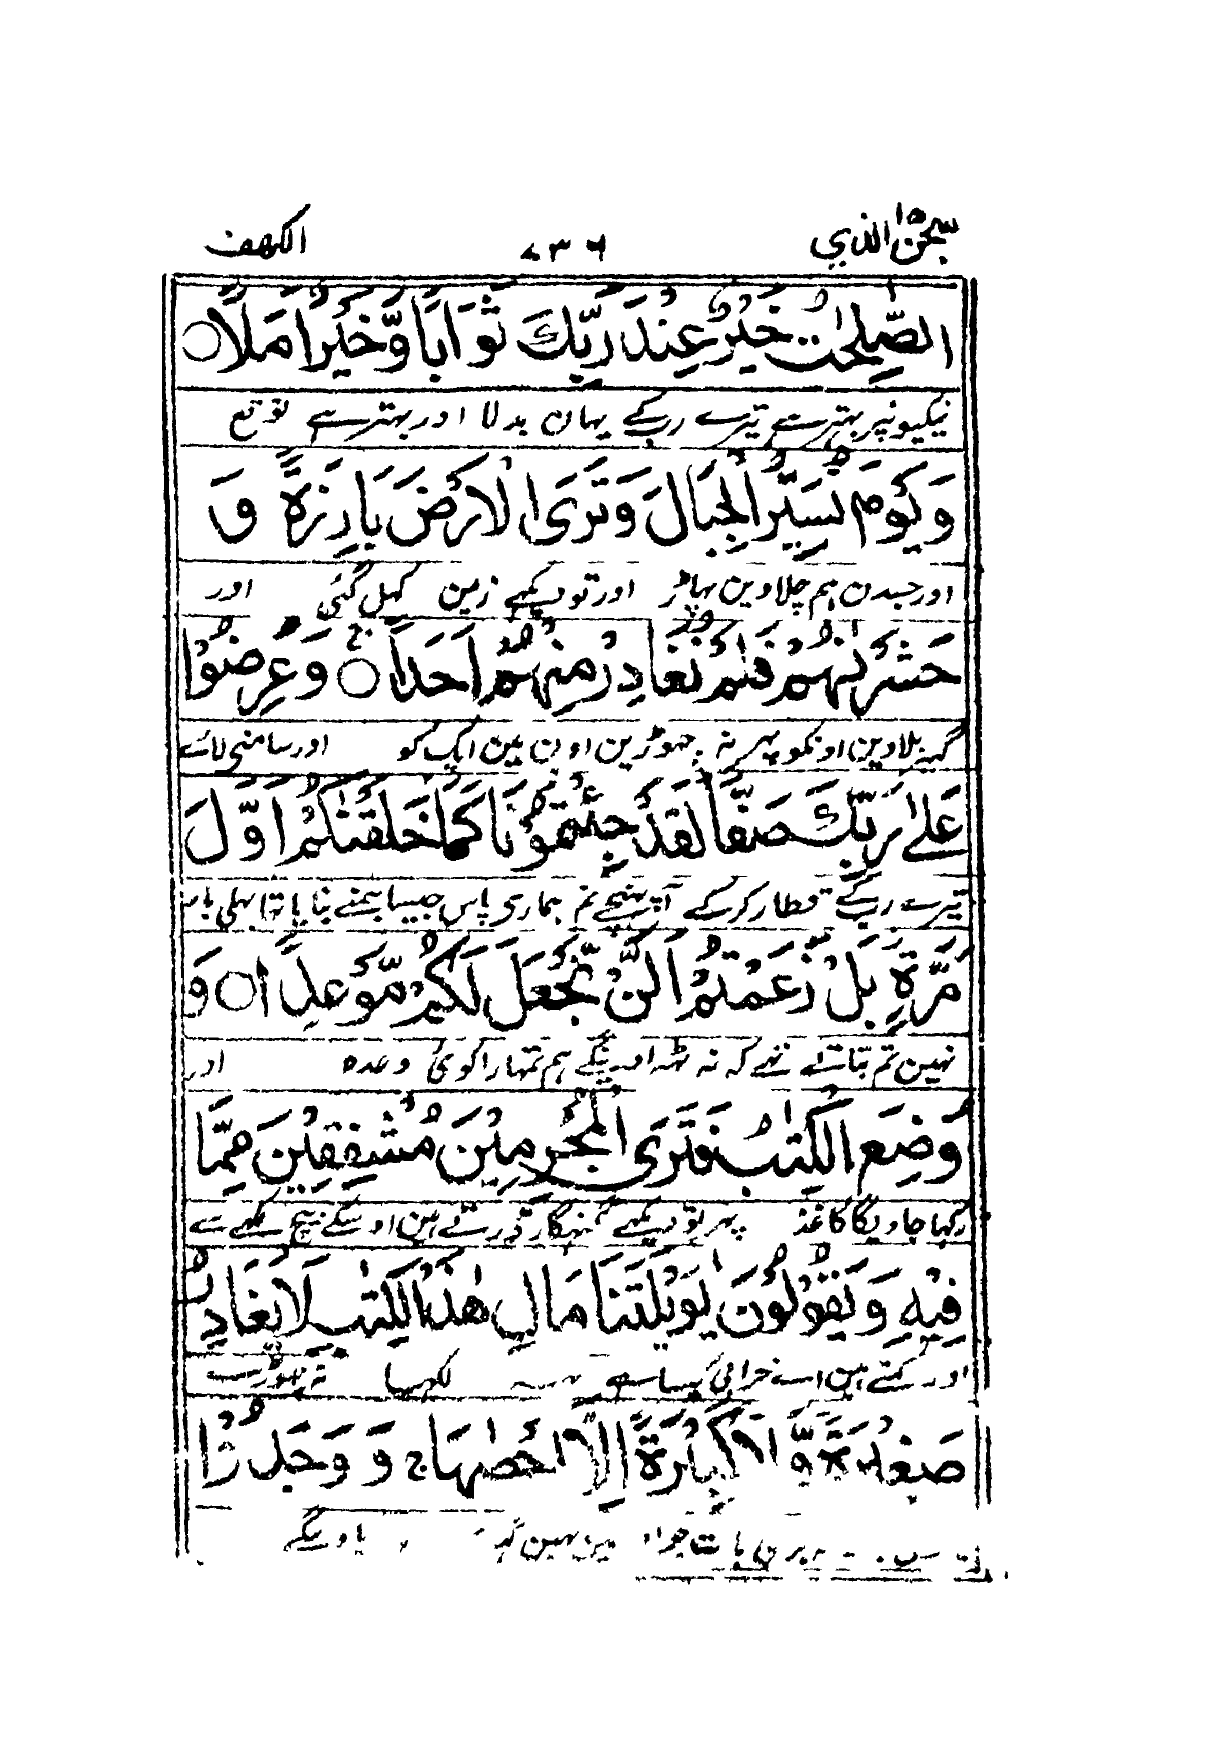 سبحٰن الذي ٤٣٦ الكهف
الصّٰلِحٰتُ خَيْرٌ عِنْدَ رَبِّكَ ثَوَابًا وَّخَيْرٌ اَمَلًا ○
نیکیونپر بہتر ہے تیرے رب کے یہان بدلا اور بہتر ہے توقع
وَيَوْمَ نُسَيِّرُ الْجِبَالَ وَتَرَى الْاَرْضَ بَارِزَةً وَّ
اور جسدن ہم چلاوین پہاڑ اور تو دیکھے زمین کھل گئی اور
حَشَرْنٰهُمْ فَلَمْ نُغَادِرْ مِنْهُمْ اَحَدًا ج ○ وَعُرِضُوْا
گہیر بلاوین اونکو پہر نہ چہوڑین اون مین ایک کو اور سامنی لائے
عَلٰى رَبِّكَ صَفًّا لَقَدْ جِئْتُمُوْنَا كَمَا خَلَقْنٰكُمْ اَوَّلَ
تیرے رب کے قطار کر کے آ پہنچے تم ہماری پاس جیسا ہمنے بنایا تہا پہلی بار
مَرَّةٍ بَلْ زَعَمْتُمْ اَلَّنْ نَّجْعَلَ لَكُمْ مَّوْعِدًا ○ وَ
نہین تم بتاتے تہے کہ نہ ٹہہراوینگے ہم تمہارا کوئی وعدہ اور
وُضِعَ الْكِتٰبُ فَتَرَى الْمُجْرِمِيْنَ مُشْفِقِيْنَ مِمَّا
رکہا جاویگا کاغذ پہر تو دیکہے گنہگار ڈرتے ہین اوسکے بیچ لکہے سے
فِيْهِ وَيَقُوْلُوْنَ يٰوَيْلَتَنَا مَالِ هٰذَا الْكِتٰبِ لَا يُغَادِرُ
اور کہتے ہین اے خرابی کیسا ہے یہ لکہا نہ چہوڑے
صَغِيْرَةً وَّلَا كَبِيْرَةً اِلَّا اَحْصٰىهَا ج وَوَجَدُوْا
بڑی بات جو مین نہین پاوینگے